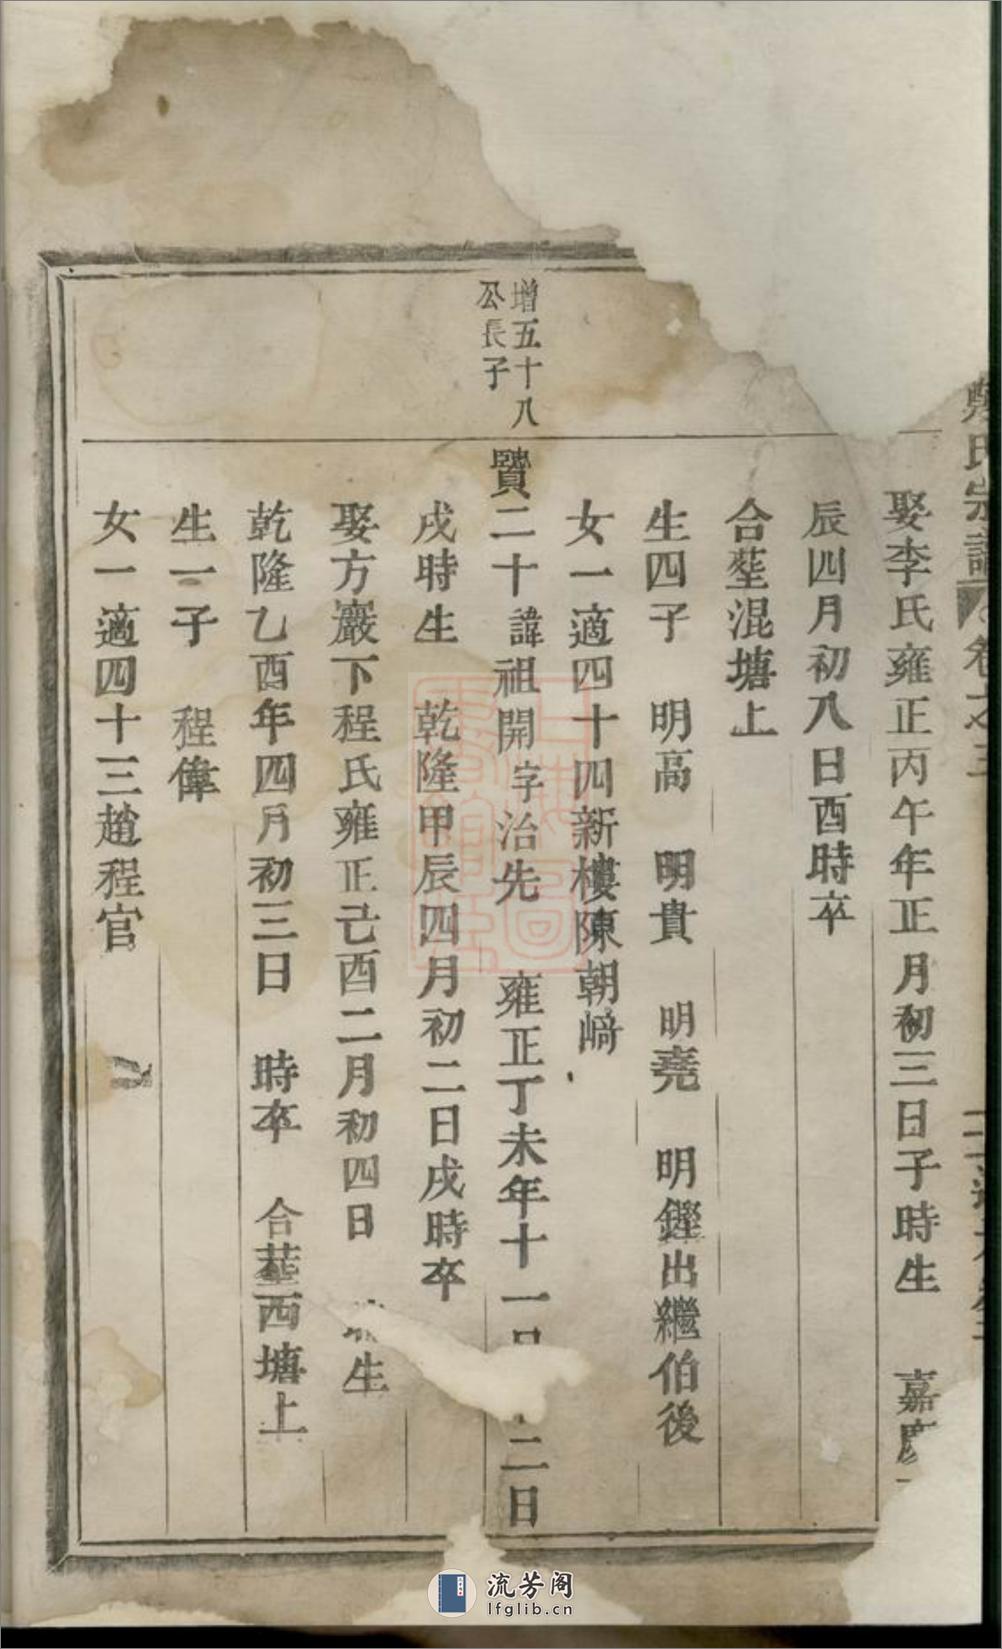 氏宗譜 卷之三
娶李氏雍正丙午年正月初三日子時生 嘉慶
辰四月初八日酉時卒
合塟混塘上
生四子 明高 明貴 明堯 明鏗出繼伯後
女一適四十四新樓陳朝﨑
增五十八
公長子
贒二十諱祖開字治先 雍正丁未年十一月二日
戌時生 乾隆甲辰四月初二日戌時卒
娶方巖下程氏雍正己酉二月初四日 生
乾隆乙酉年四月初三日 時卒 合塟西塘上
生一子 程偉
女一適四十三趙程官
流芳阁
lfglib.cn